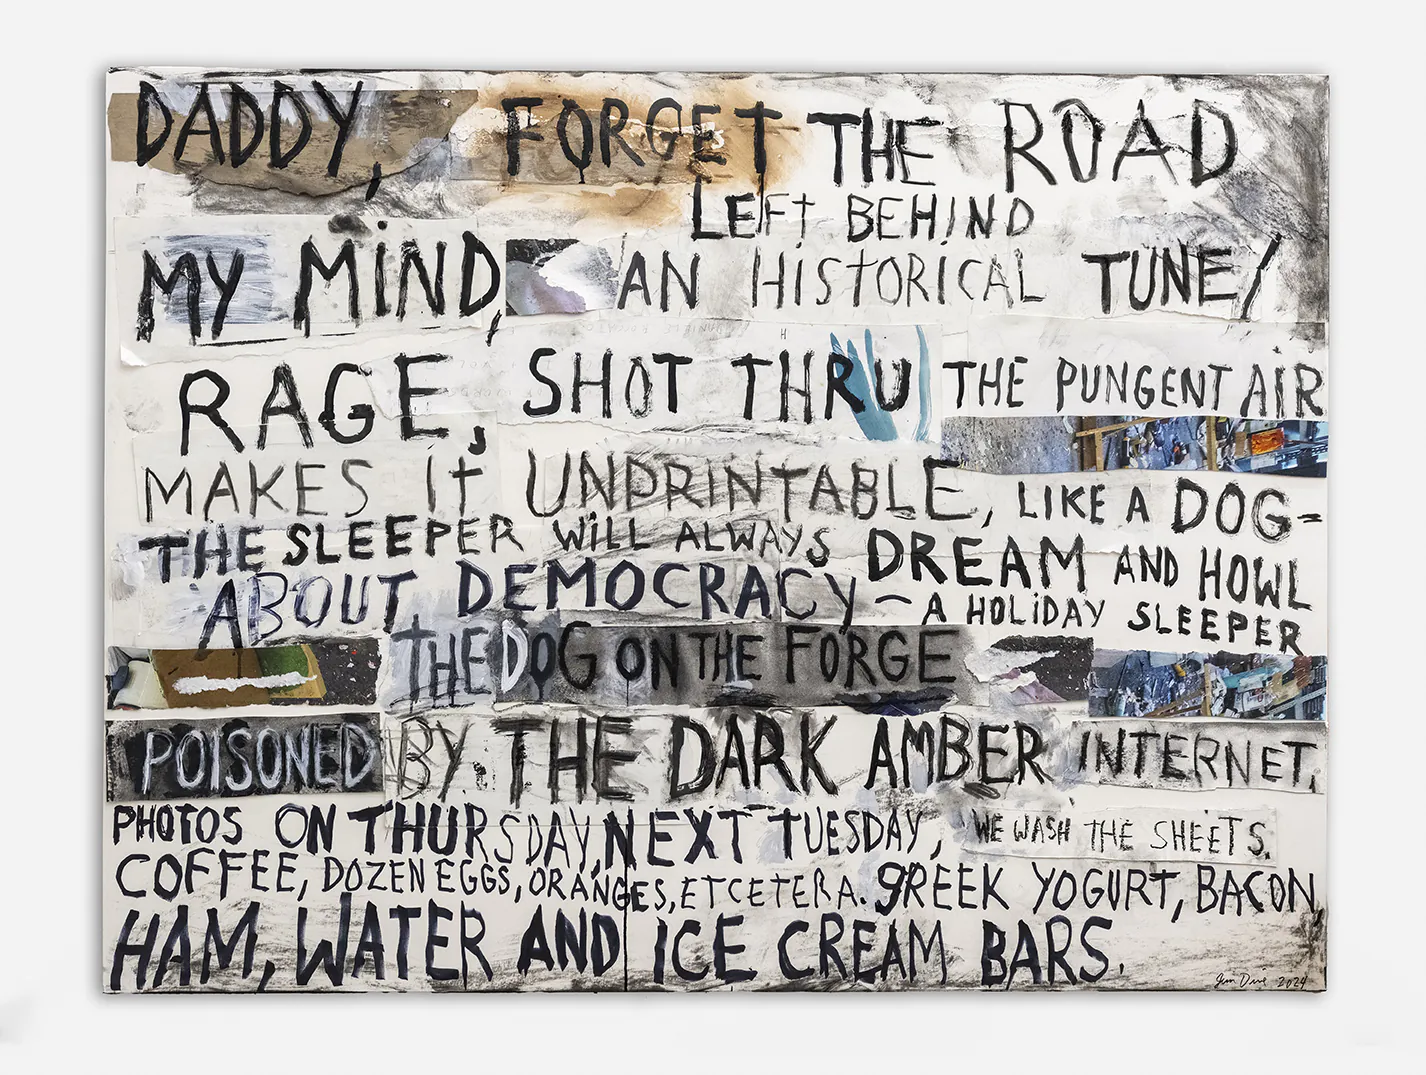 DADDY, FORGET THE ROAD
LEFT BEHIND
MY MIND, AN HISTORICAL TUNE/
RAGE, SHOT THRU THE PUNGENT AIR
MAKES IT UNPRINTABLE, LIKE A DOG-
THE SLEEPER WILL ALWAYS DREAM AND HOWL
ABOUT DEMOCRACY — A HOLIDAY SLEEPER
THE DOG ON THE FORGE
POISONED BY THE DARK AMBER INTERNET,
PHOTOS ON THURSDAY, NEXT TUESDAY, WE WASH THE SHEETS.
COFFEE, DOZEN EGGS, ORANGES, ETCETERA. GREEK YOGURT, BACON,
HAM, WATER AND ICE CREAM BARS.
Jim Dine 2024